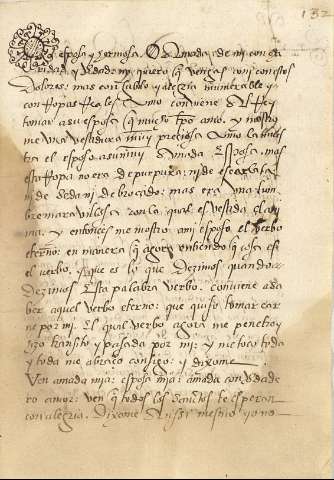 132
esposa y hermosa. O Amada de mi con ca
ridad y Verdad: no quiero q vengas con estos
Dolores: mas con Jubilo y alegria innumerable y
con Ropas Reales como conviene al Rey
tomar a su esposa q mucho tpo amo. y mostro
me una vestidura muy preciosa como la mues
tra el esposo a su muy amada Esposa. mas
esta Ropa no era de purpura: ni de escarlata
ni de seda ni de brocado: mas era una lum
bre maravillosa con la qual es vestida el ani
ma. y entonces me mostro a mi esposo el verbo
eterno: en manera q agora entiendo q cosa es
el verbo. y que es lo que Dezimos quando
Dezimos Esta palabra verbo. conviene a sa
ber aquel verbo eterno: que quiso tomar car
ne por mi. El qual verbo agora me penetro y
hizo transito y pasada por mi: y me toco toda
y toda me abraço consigo: y Dixome
Ven amada mia: esposa mia: amada con verdade
ro amor: ven q todos los sanctos te esperan
con alegria. Dixome Assi mesmo yo no